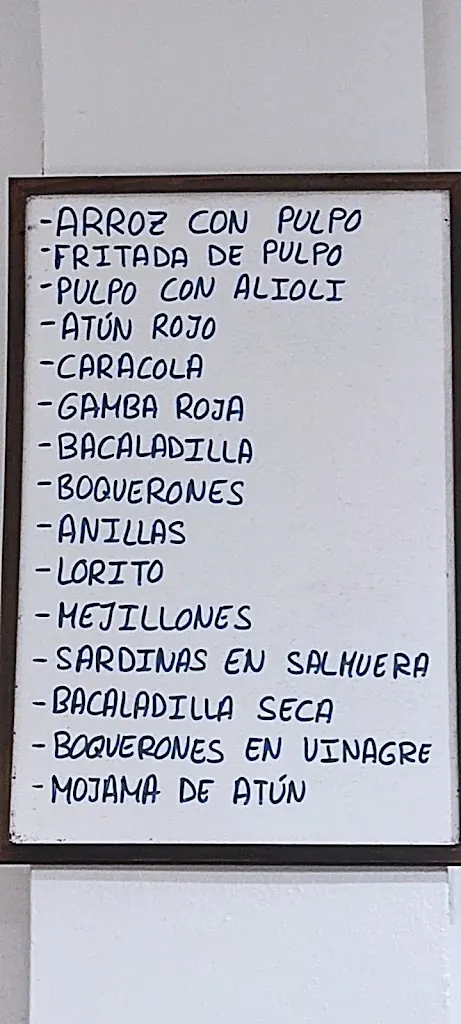 -ARROZ CON PULPO
-FRITADA DE PULPO
-PULPO CON ALIOLI
-ATÚN ROJO
-CARACOLA
-GAMBA ROJA
-BACALADILLA
-BOQUERONES
-ANILLAS
-LORITO
-MEJILLONES
-SARDINAS EN SALMUERA
-BACALADILLA SECA
-BOQUERONES EN VINAGRE
-MOJAMA DE ATÚN